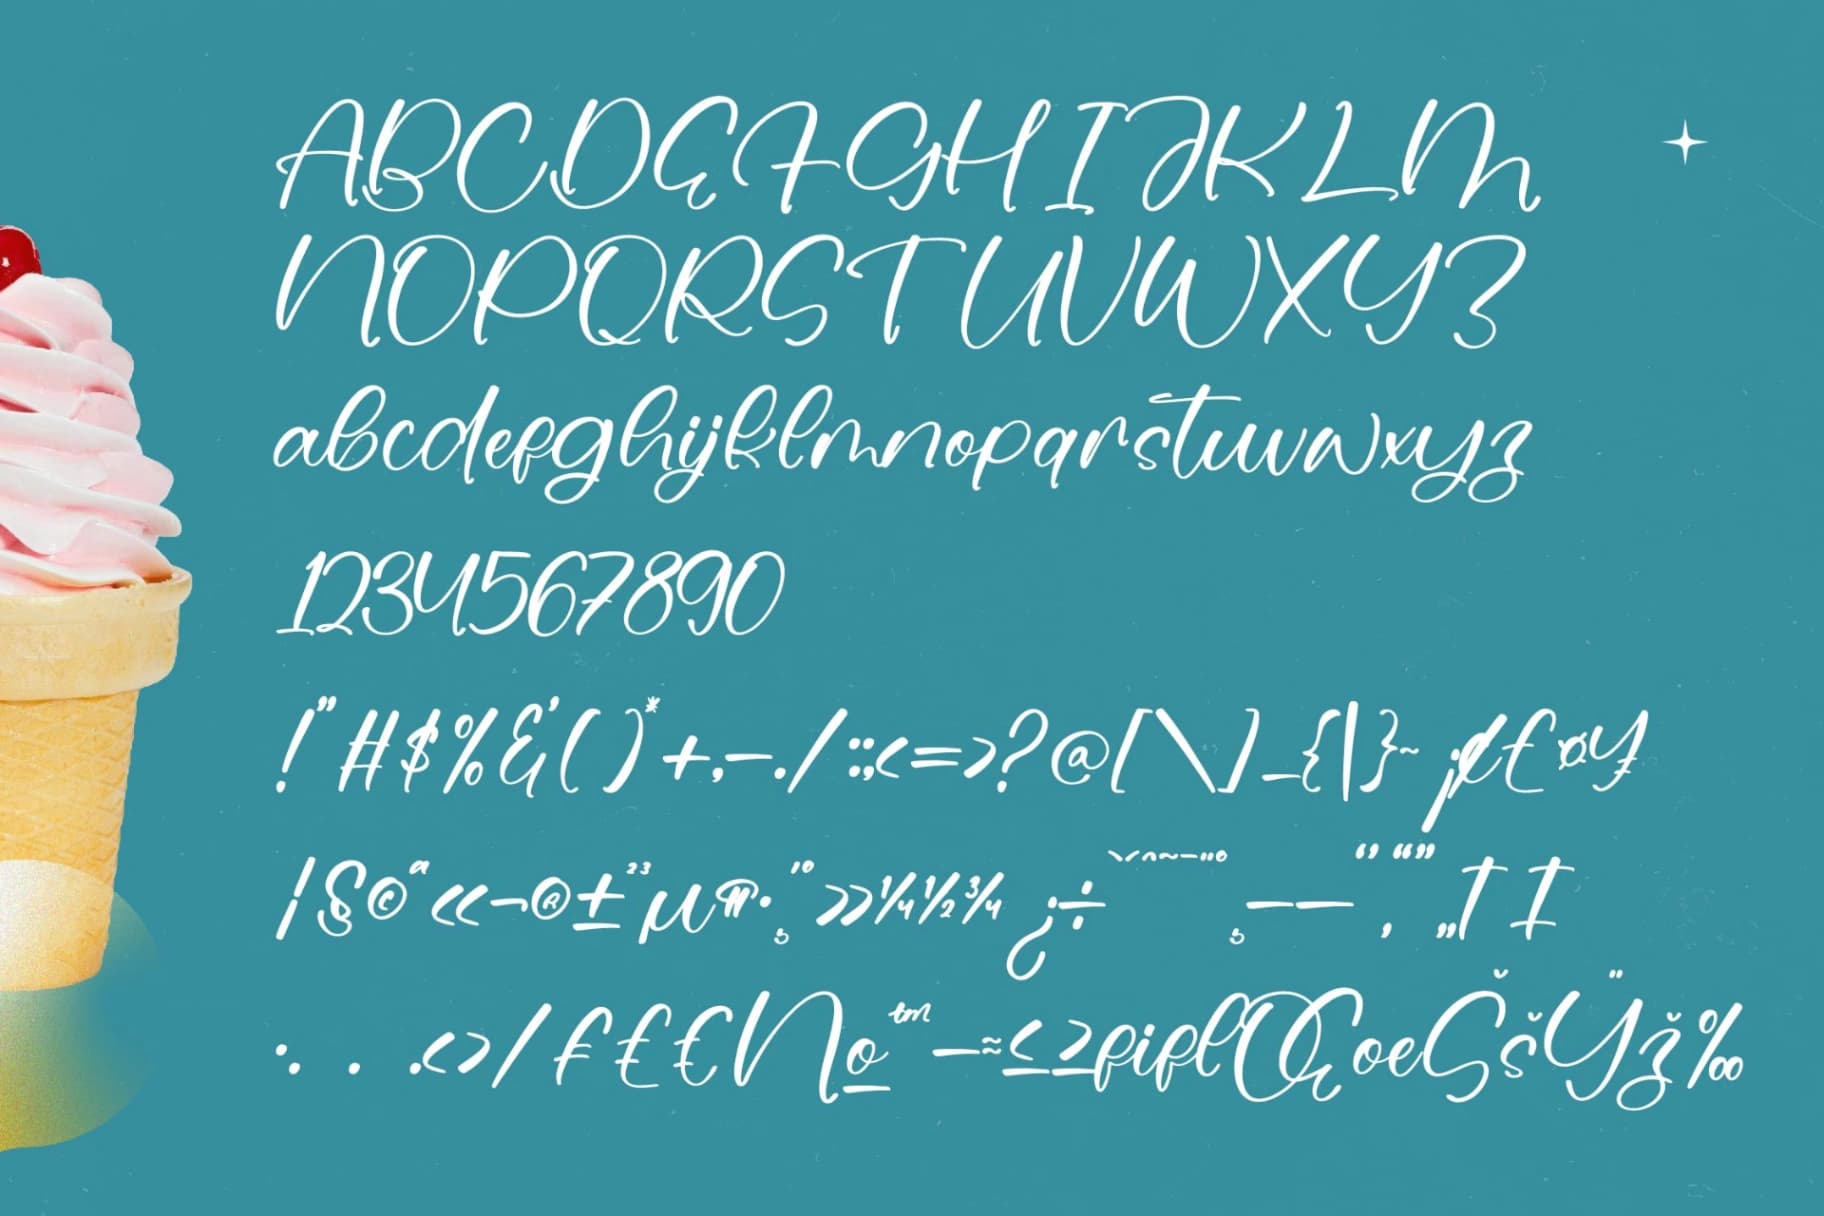 ABCDEFGHIJKLM
NOPQRSTUVWXYZ
abcdefghijklmnopqrstuvwxyz
1234567890
!"#$%&'()*+,-./:;<=>?@[\]_{|}~¡¢£¤¥
¦§©ª«¬®±²³µ¶·¸¹º»¼½¾¿÷ˋˊˆ˜¯¨˚¸–—‘’‚“”„†‡
•...‹›⁄₣₤€№™−≈≤≥fiflŒœŠšŸž‰